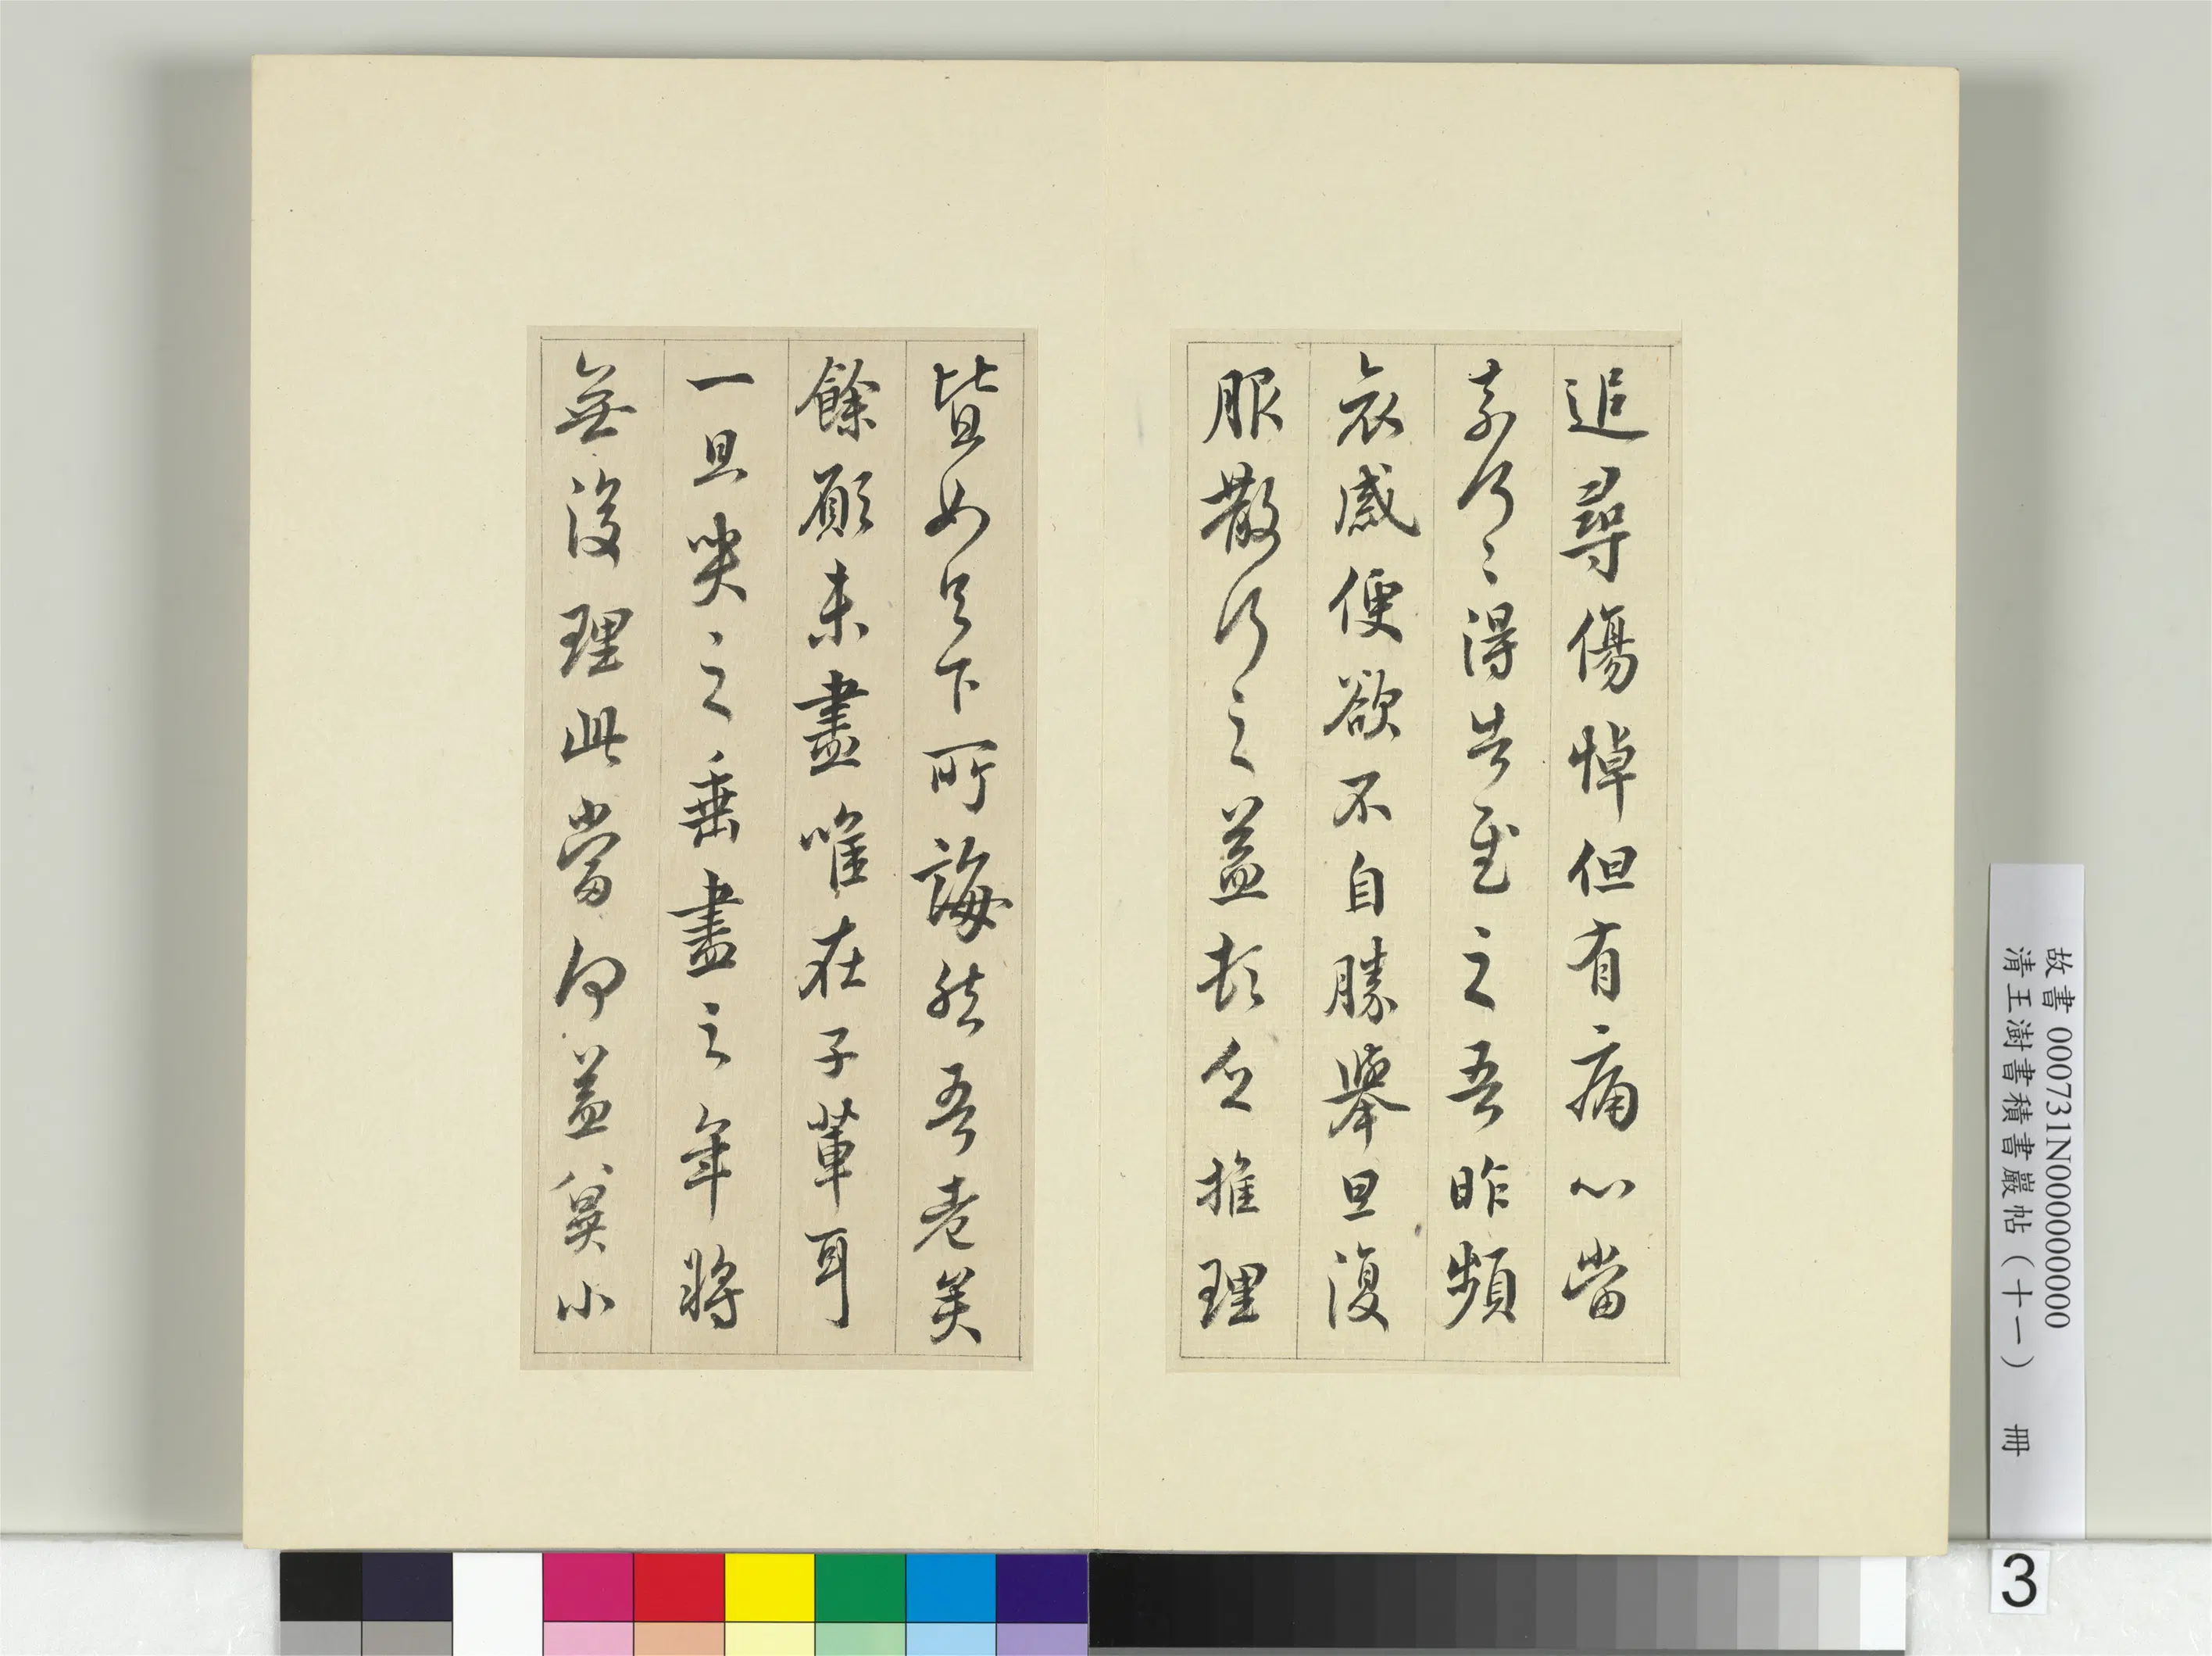 追尋傷悼但有痛心當
奈何〻得告慰之吾昨頻
哀感便欲不自勝舉旦復
服散行之益頓乏推理
皆如足下所誨然吾老矣
餘願未盡唯在子輩耳
一旦哭之垂盡之年將
無復理此當何益冀小
故書 000731N000000000
清王澍書積書巖帖（十一） 冊
3